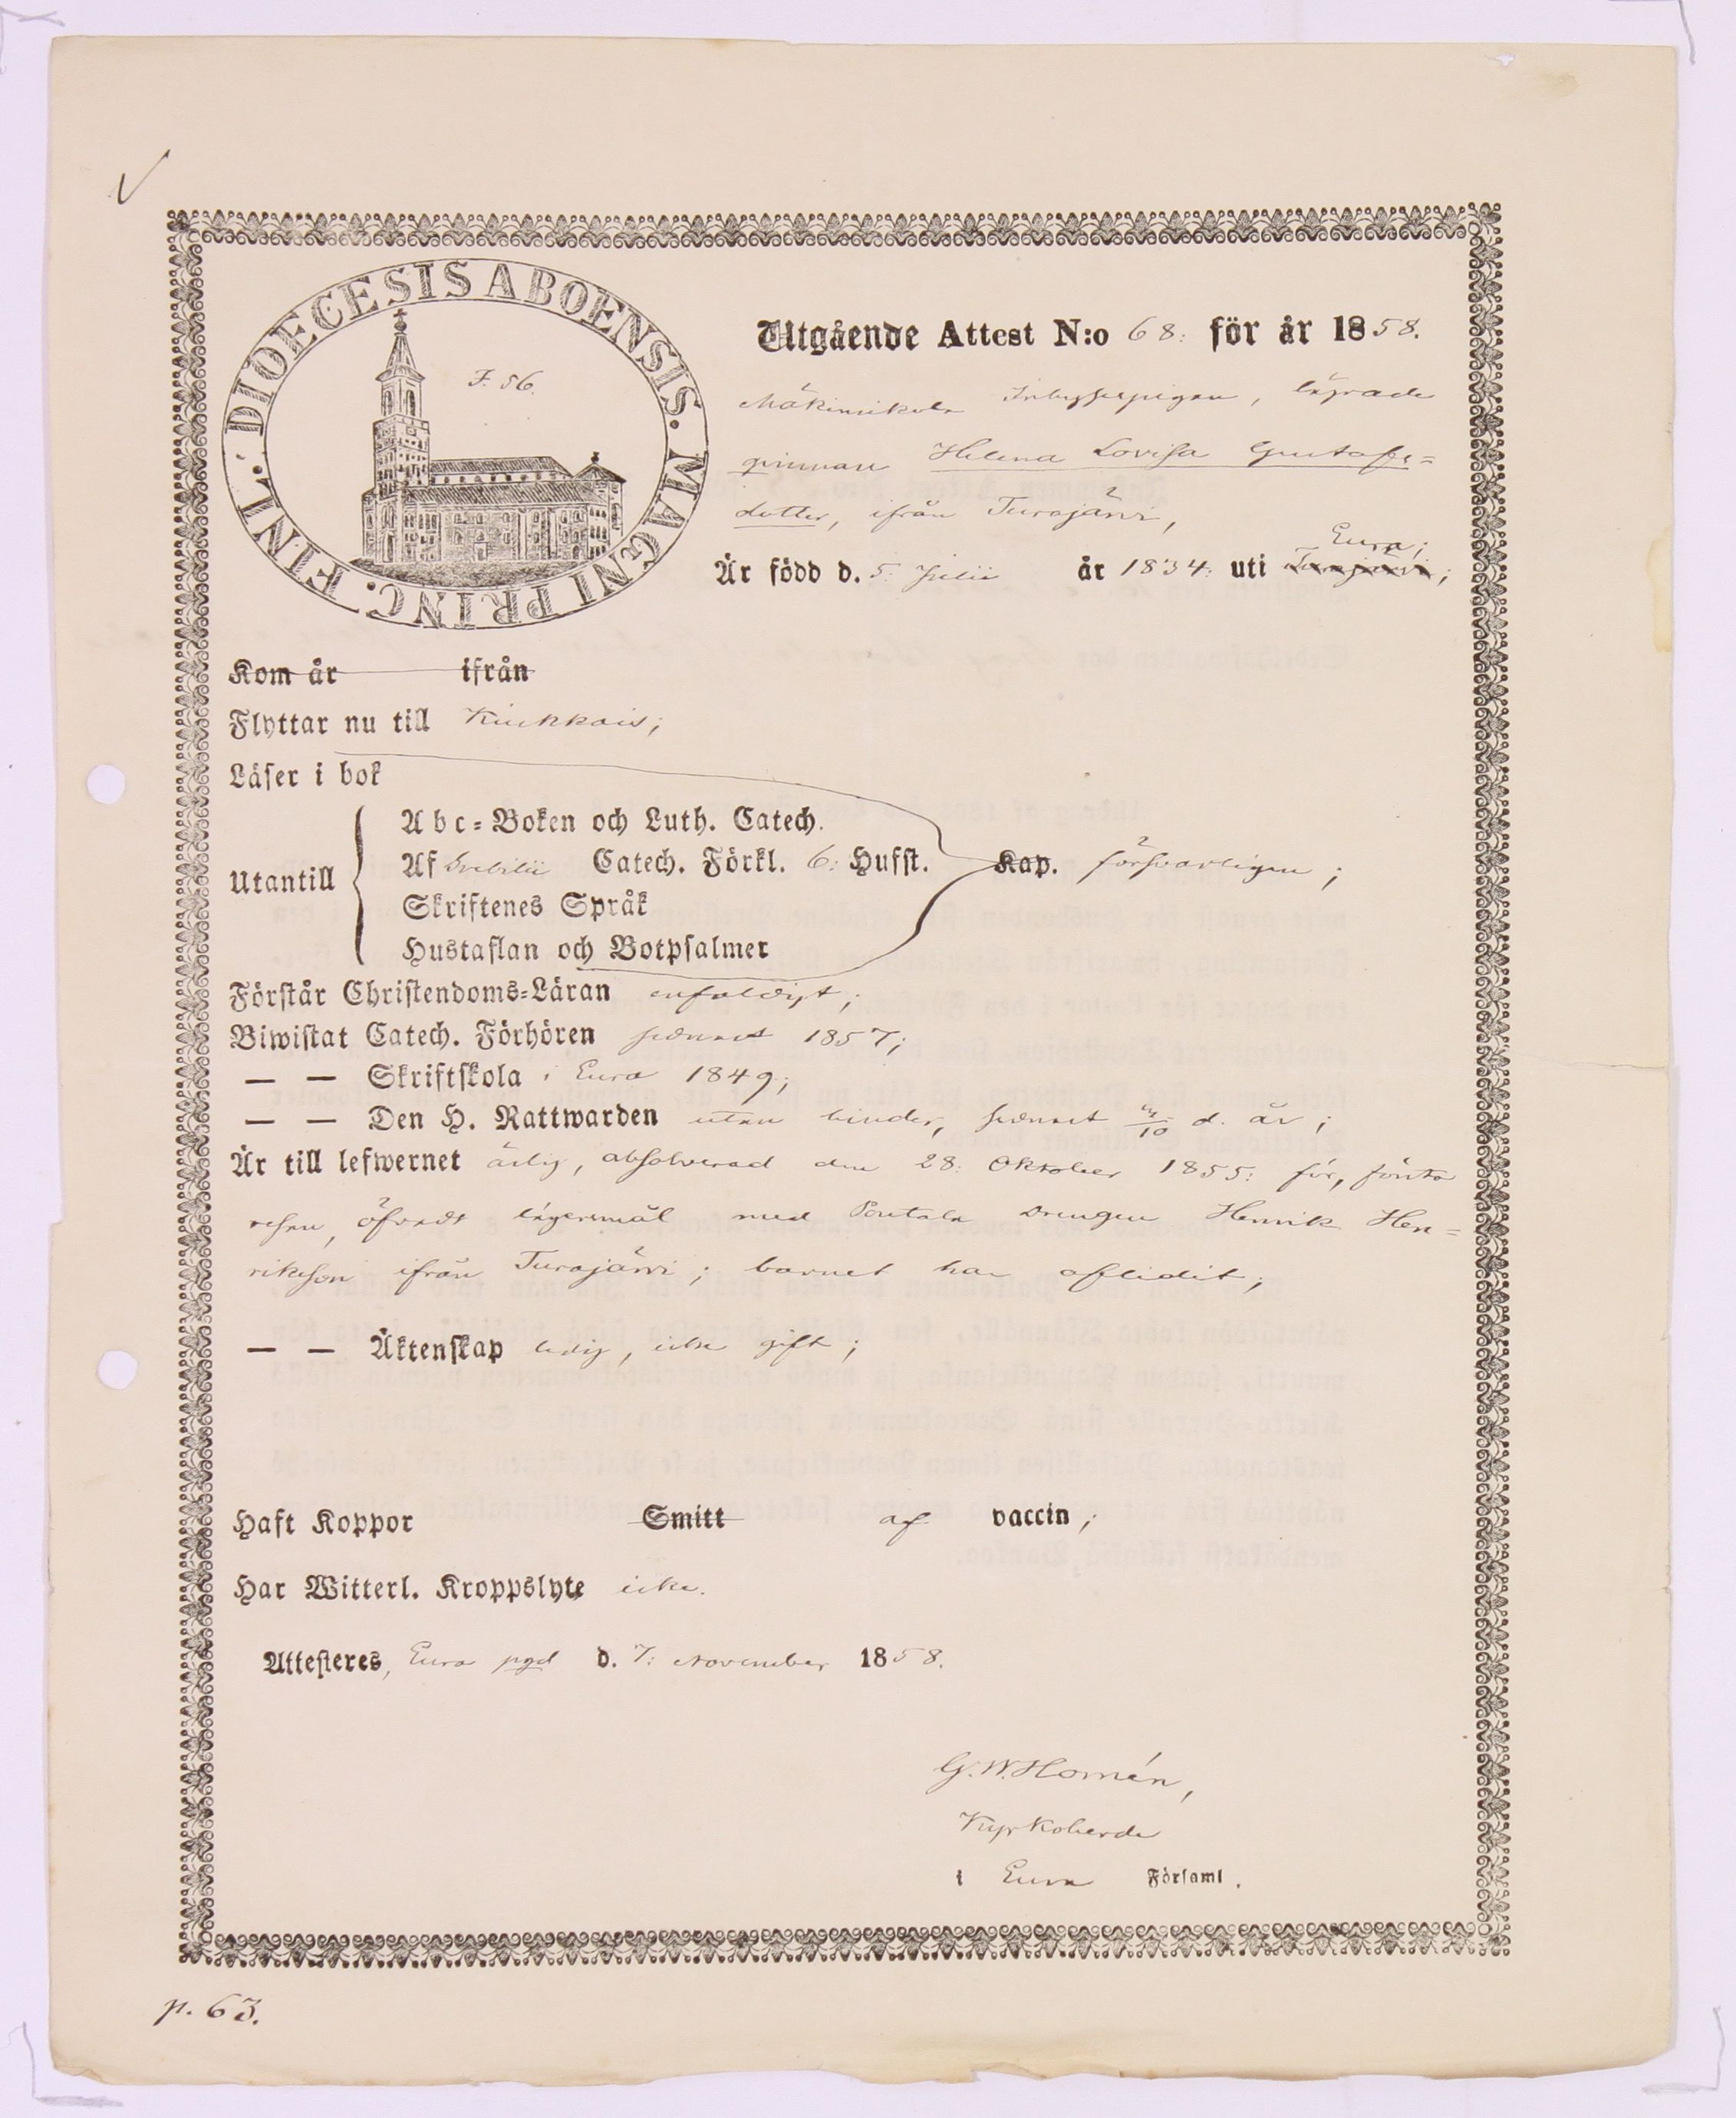 DIOECESIS ABOENSIS. MAGNI PRINC. FINL.
F. 56.
Utgående Attest N:o 68: för år 1858.
Mäkimikola Inhysespigan, lägrade
qvinnan Helena Lovisa Gustafs=
dotter, ifrån Turajärvi,
Eura;
Är född d. 5: Julii år 1834: uti Turajärvi;
Kom år ifrån
Flyttar nu till Kiukkais;
Läser i bok
Abc=Boken och Luth. Catech.
Utantill Af Svebilii Catech. Förkl. 6: Hufst. Kap. försvarligen;
Skriftenes Språk
Hustaflan och Botpsalmer
Förstår Christendoms=Läran enfaldigt;
Biwistat Catech. Förhören sednast 1857;
— — Skriftskola i Eura 1849;
— — Den H. Nattwarden utan hinder, sednast /10 d. år;
Är till lefwernet ärlig, absolverad den 28: Oktober 1855: för, första
resan, öfvadt lägersmål med Pontala Drengen Henrik Hen=
rikson ifrån Turajärvi; barnet har aflidit;
— — Äktenskap ledig, icke gift;
Haft Koppor Smitt af vaccin;
Har Witterl. Kroppslyte icke.
Attesteres, Eura pgd d. 7: November 1858.
G. W. Homén,
Kyrkoherde
i Eura Församl.
p. 63.